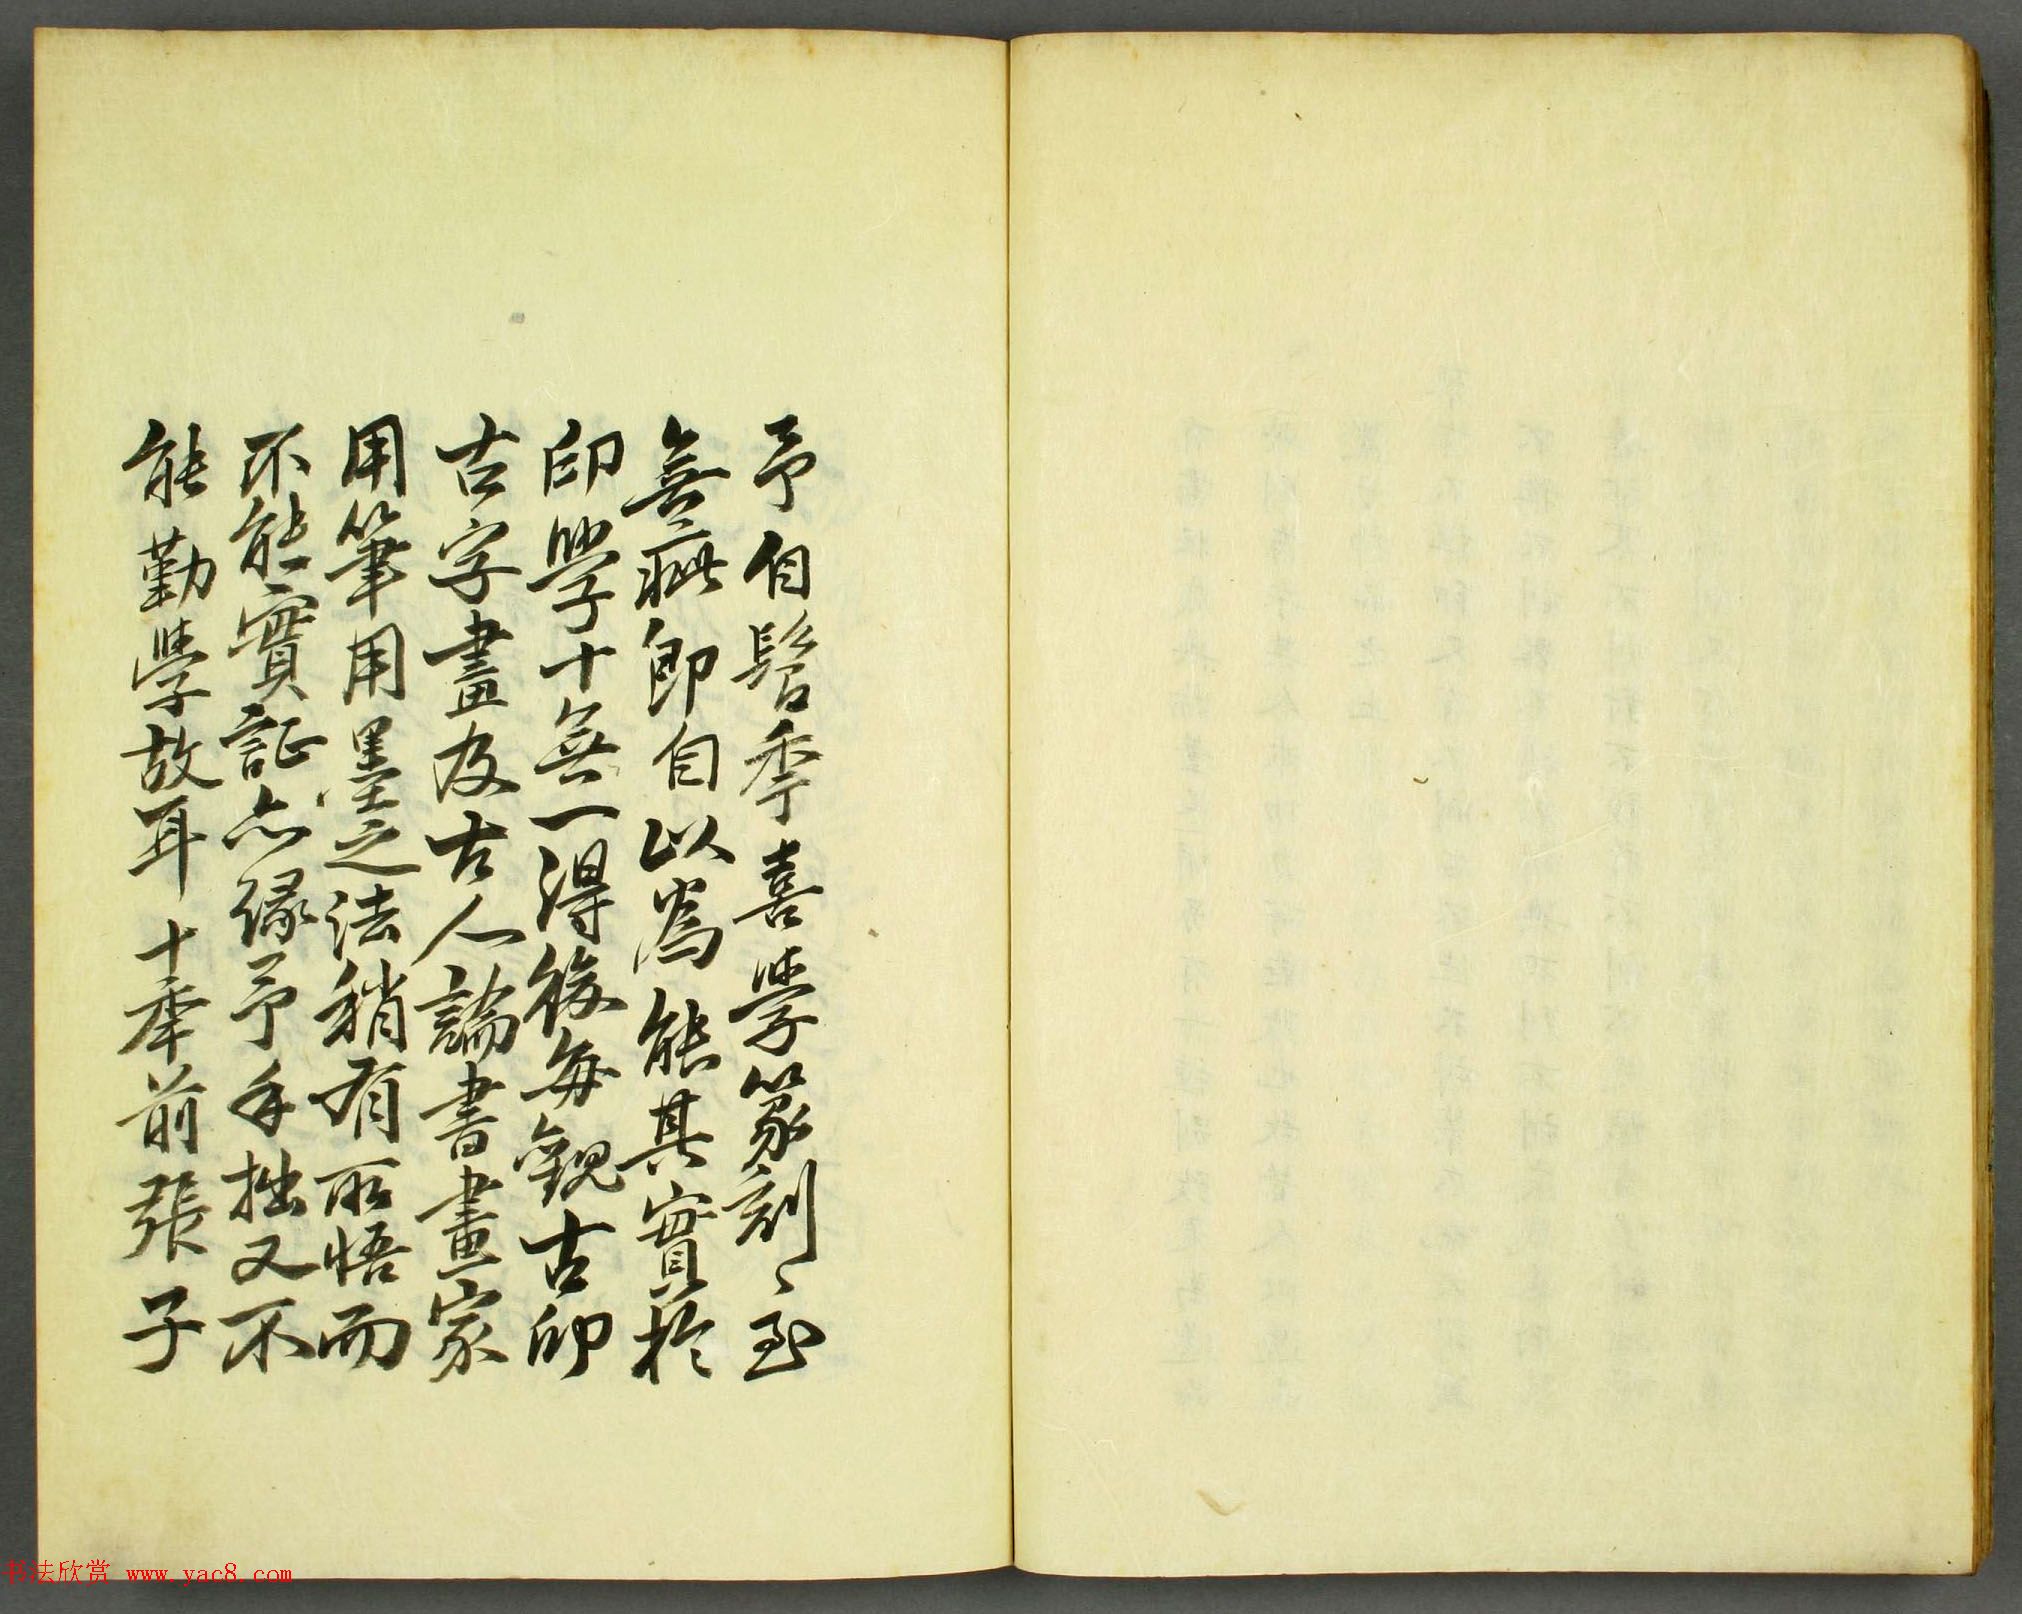 予自髫秊喜學篆刻〻至
無疵即自以為能其實於
印學十無一得後每觀古印
古字畫及古人論書畫家
用筆用墨之法稍有所悟而
不能實証亦緣予手拙又不
能勤學故耳十年前張子
书法欣赏 www.yac8.com